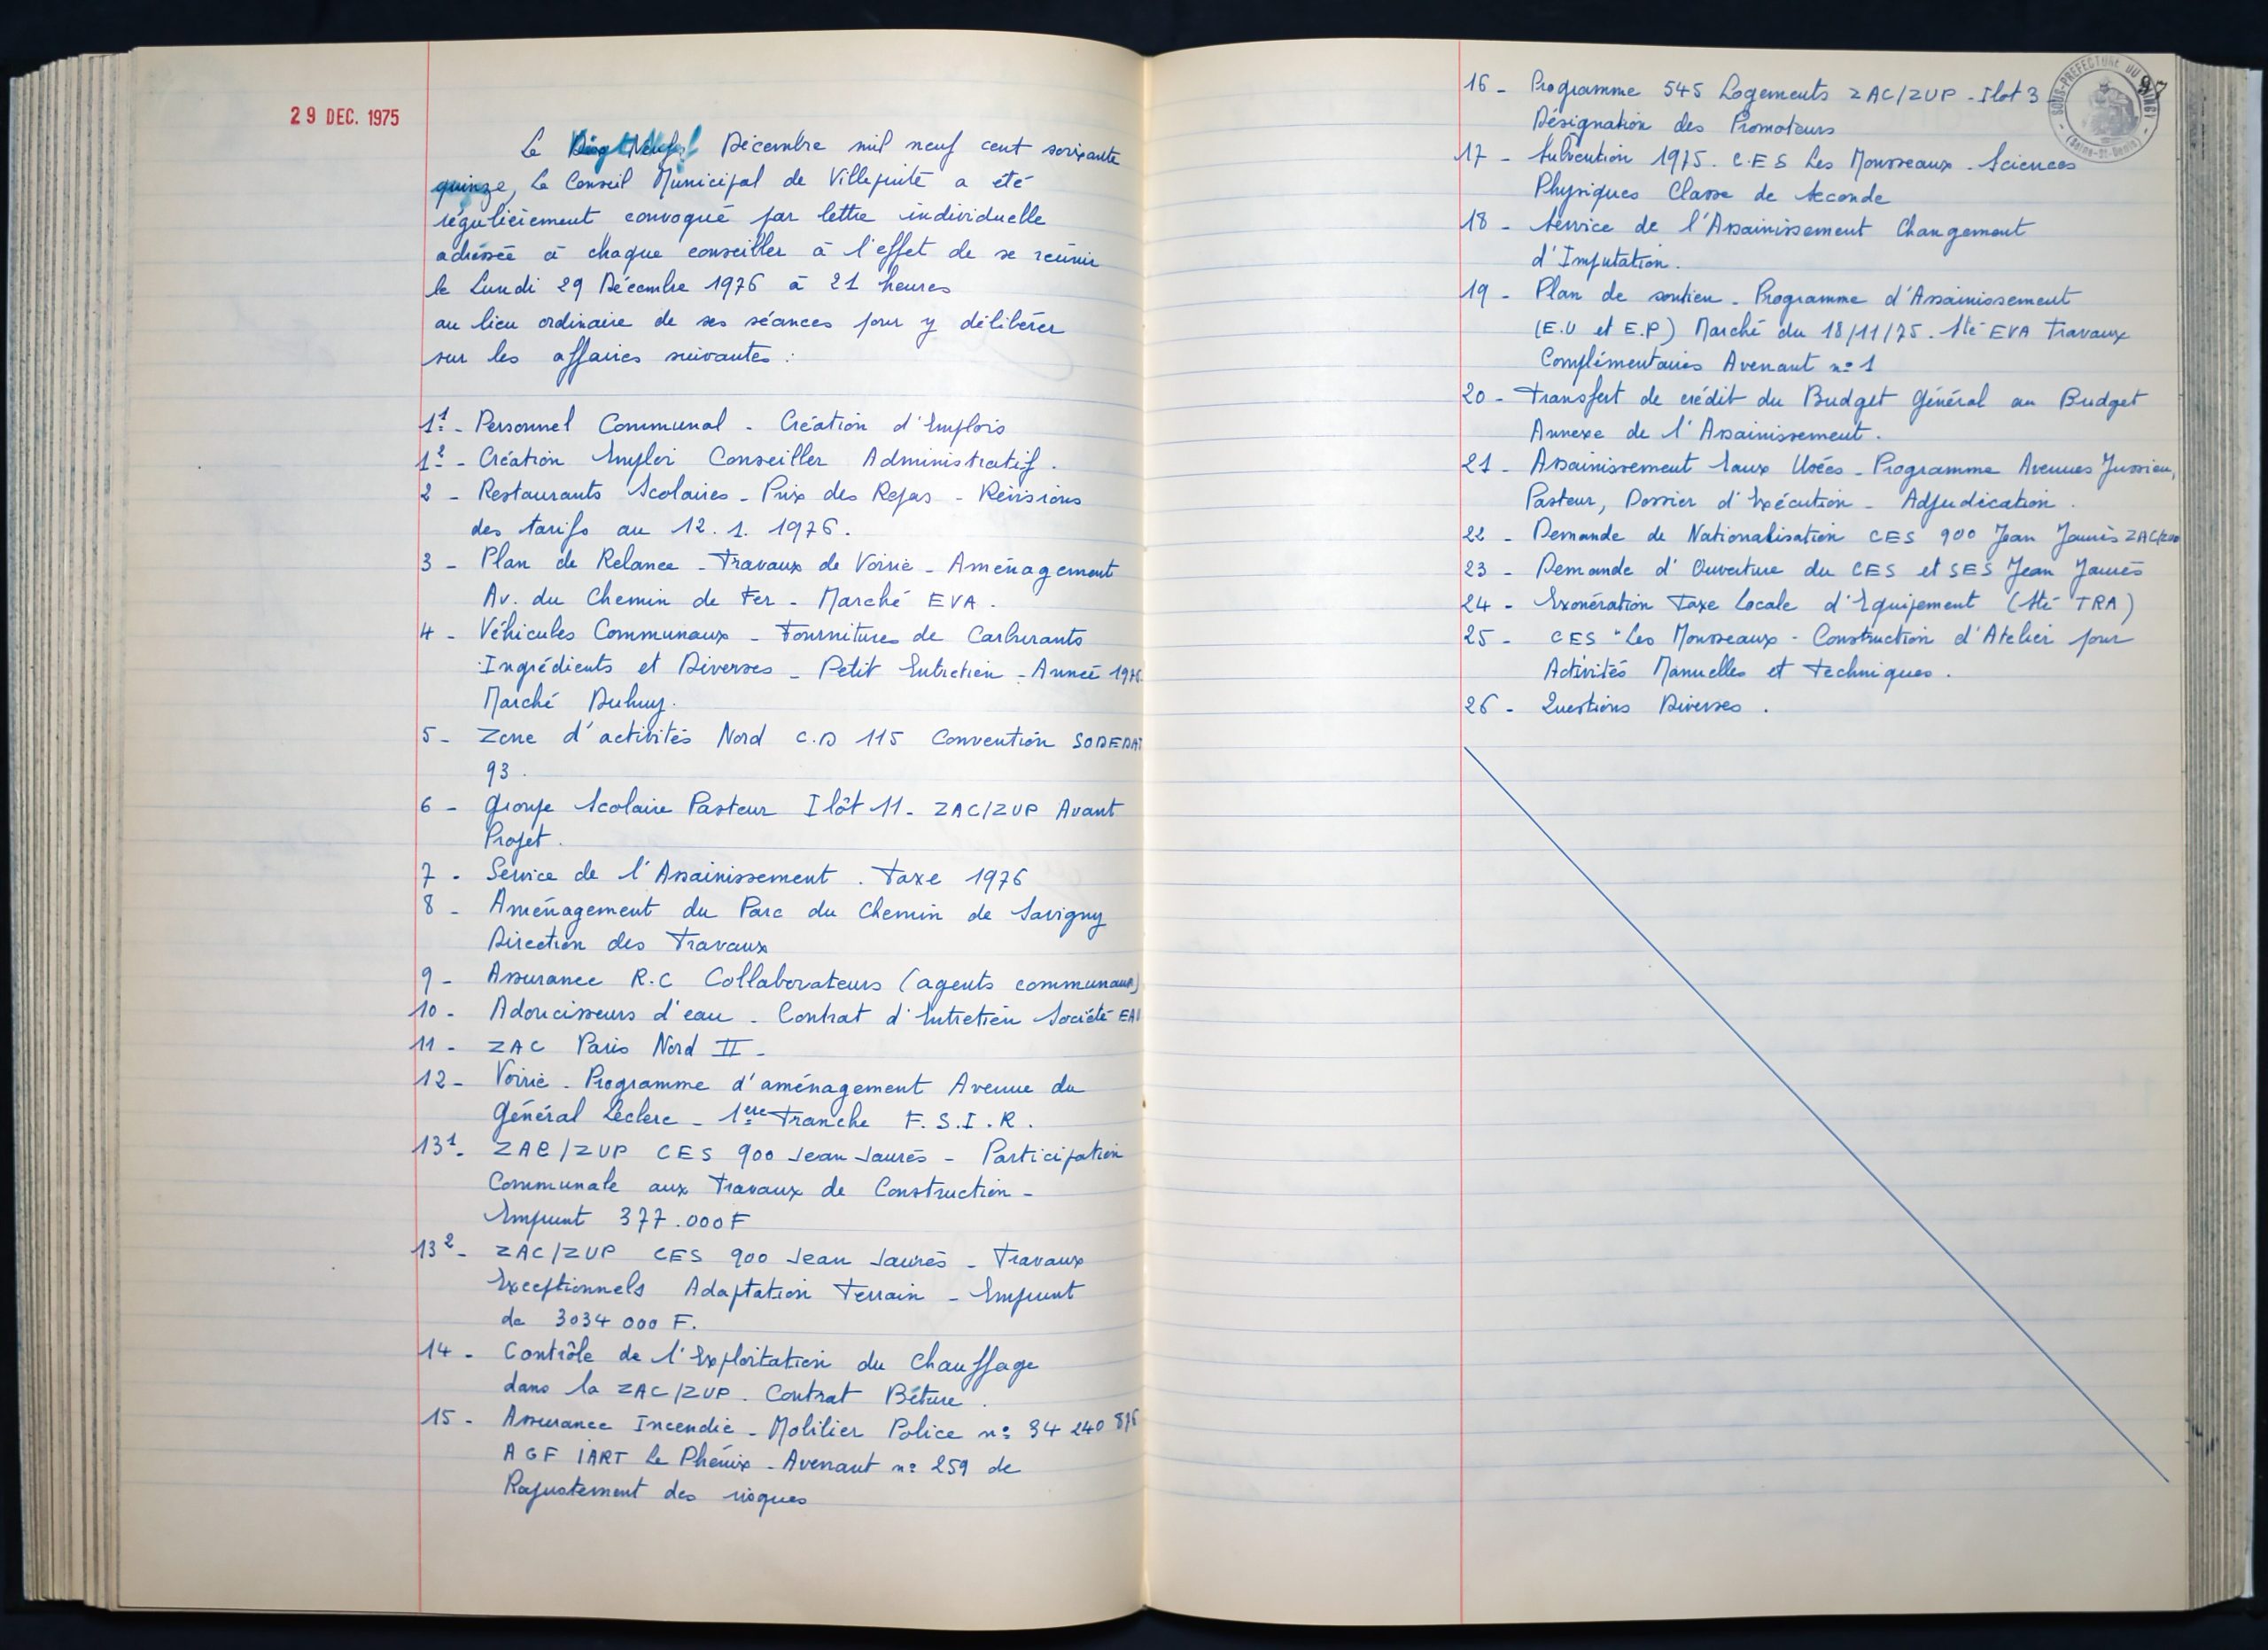 29 DEC. 1975
Le Décembre mil neuf cent soixante
quinze, Le Conseil Municipal de Villepinte a été
régulièrement convoqué par lettre individuelle
adressée à chaque conseiller à l'effet de se réunir
le Lundi 29 Décembre 1976 à 21 heures
au lieu ordinaire de ses séances pour y délibérer
sur les affaires suivantes :
1¹ - Personnel Communal - Création d'Emplois
1² - Création Emploi Conseiller Administratif.
2 - Restaurants Scolaires - Prix des Repas - Révisions
des tarifs au 12. 1. 1976.
3 - Plan de Relance - Travaux de Voirie - Aménagement
Av. du Chemin de Fer - Marché EVA.
4 - Véhicules Communaux - Fournitures de Carburants
Ingrédients et Diverses - Petit Entretien - Année 1976
Marché Duhuy.
5 - Zone d'activités Nord C.D 115 Convention SODEDAT
93.
6 - Groupe Scolaire Pasteur Ilôt 11 - ZAC/ZUP Avant
Projet.
7 - Service de l'Assainissement. Taxe 1976
8 - Aménagement du Parc du Chemin de Savigny
Direction des Travaux
9 - Assurance R.C Collaborateurs (agents communaux)
10 - Adoucisseurs d'eau - Contrat d'Entretien Société
11 - ZAC Paris Nord II -
12 - Voirie - Programme d'aménagement Avenue du
Général Leclerc - 1ère Tranche F.S.I.R.
13¹ - ZAC/ZUP CES 900 Jean Jaurès - Participation
Communale aux Travaux de Construction -
Emprunt 377.000F
13² - ZAC/ZUP CES 900 Jean Jaurès - Travaux
Exceptionnels Adaptation Terrain - Emprunt
de 3034 000 F.
14 - Contrôle de l'Exploitation du Chauffage
dans la ZAC/ZUP. Contrat Béture.
15 - Assurance Incendie - Mobilier Police n° 34 240
AGF IART Le Phénix - Avenant n° 259 de
Rajustement des risques
97
SOUS-PRÉFECTURE DU RAINCY
(Seine-St-Denis)
16 - Programme 545 Logements ZAC/ZUP - Ilot 3
Désignation des Promoteurs
17 - Subvention 1975. C.E.S Les Mousseaux - Sciences
Physiques Classe de Seconde
18 - Service de l'Assainissement Changement
d'Imputation.
19 - Plan de soutien - Programme d'Assainissement
(E.U et E.P) Marché du 18/11/75. Sté EVA Travaux
Complémentaires Avenant n° 1
20 - Transfert de crédit du Budget Général au Budget
Annexe de l'Assainissement.
21 - Assainissement Eaux Usées - Programme Avenues Jussieu,
Pasteur, Dossier d'Exécution - Adjudication.
22 - Demande de Nationalisation CES 900 Jean Jaurès ZAC/ZUP
23 - Demande d'Ouverture du CES et SES Jean Jaurès
24 - Exonération Taxe Locale d'Equipement (Sté TRA)
25 - CES "Les Mousseaux - Construction d'Atelier pour
Activités Manuelles et Techniques.
26 - Questions Diverses.